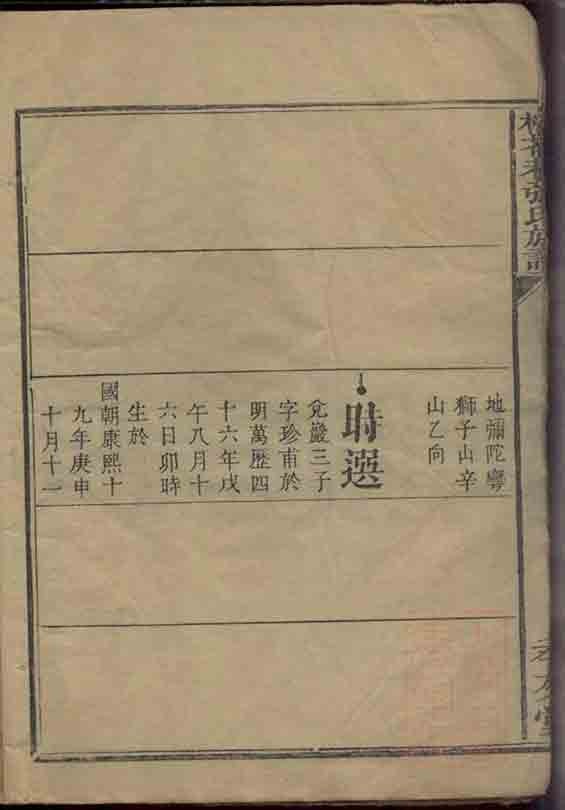 張氏族譜
孝友堂
地彌陀嶴
獅子山辛
山乙向
時選
兌巖三子
字珍甫於
明萬歷四
十六年戊
午八月十
六日卯時
生於
國朝康熙十
九年庚申
十月十一